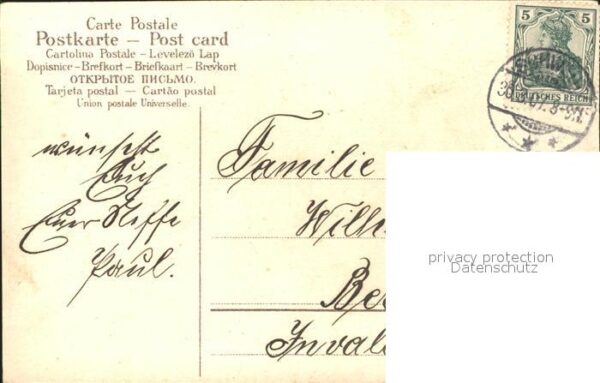 Carte Postale
Postkarte — Post card
Cartolina Postale - Levelező Lap
Dopisnice - Brefkort - Briefkaart - Brevkort
ОТКРЫТОЕ ПИСЬМО.
Tarjeta postal — Cartão postal
Union postale Universelle.
5 5
DEUTSCHES REICH
wünscht
Euch
Euer Neffe
Paul.
Familie
Wilh
Be
Inval
privacy protection
Datenschutz